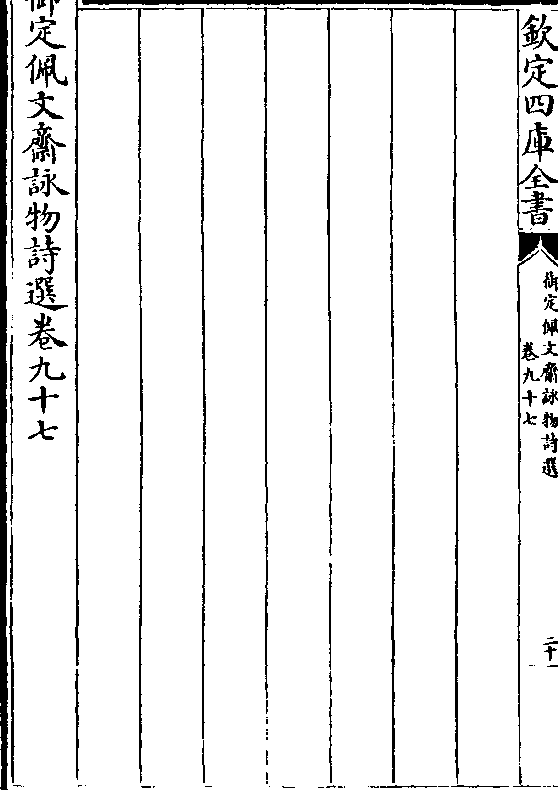 欽定四庫全書
御定佩文齋詠物詩選
卷九十七
二十
御定佩文齋詠物詩選卷九十七